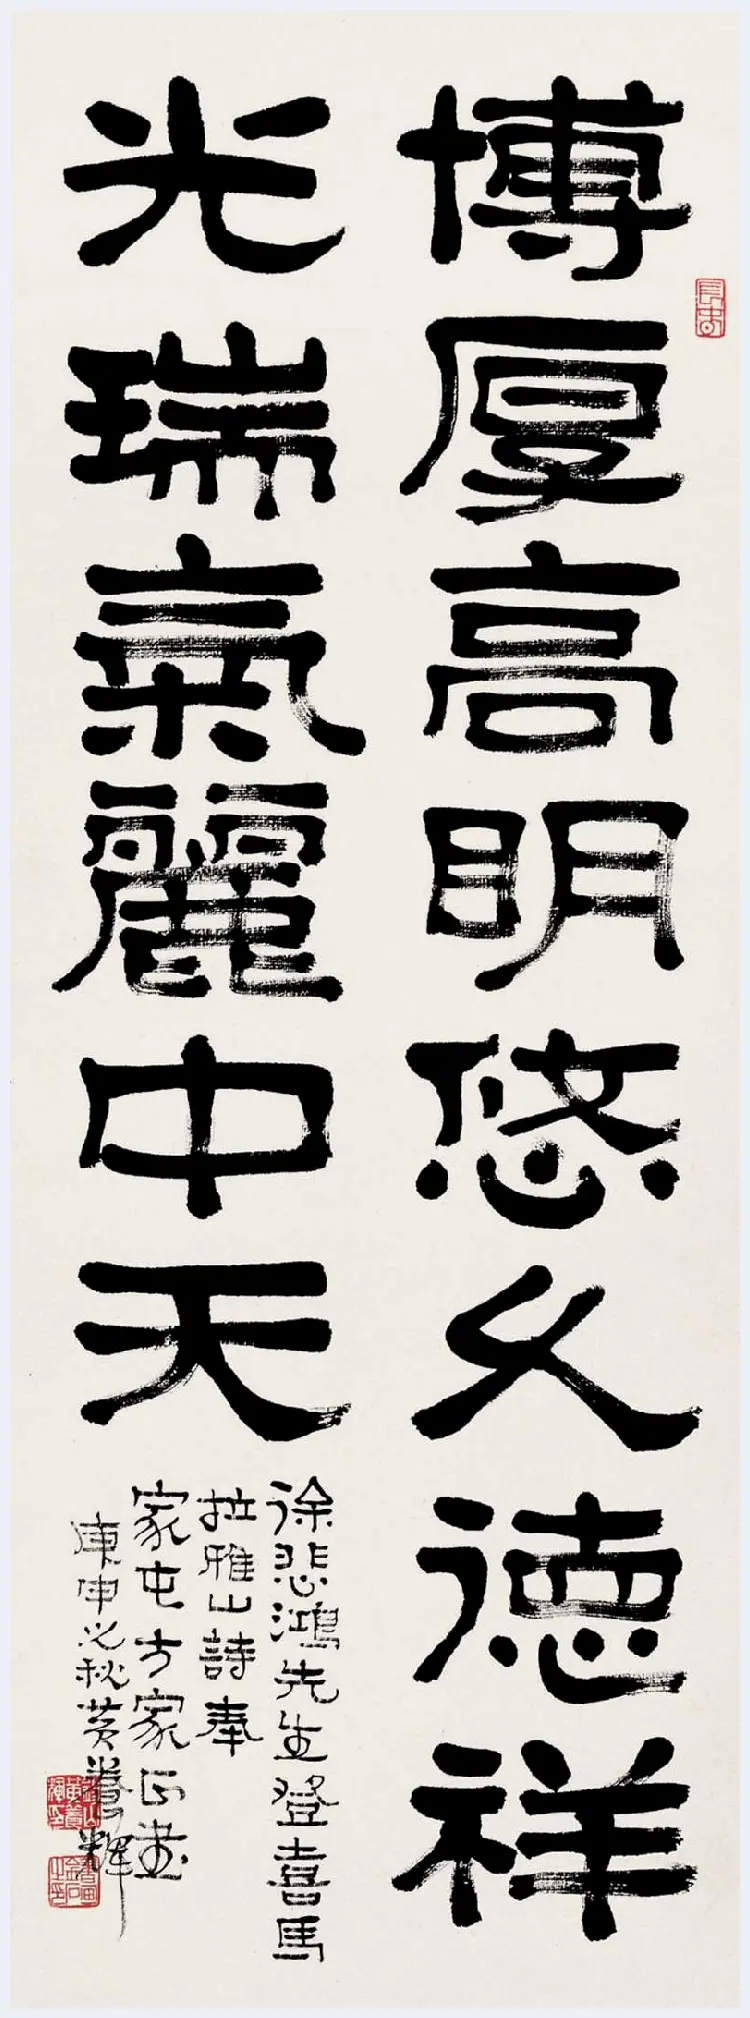 博厚高明悠久德祥
光瑞氣麗中天
徐悲鴻先生登喜馬
拉雅山詩奉
家屯方家正畫
庚申之秋黄養輝